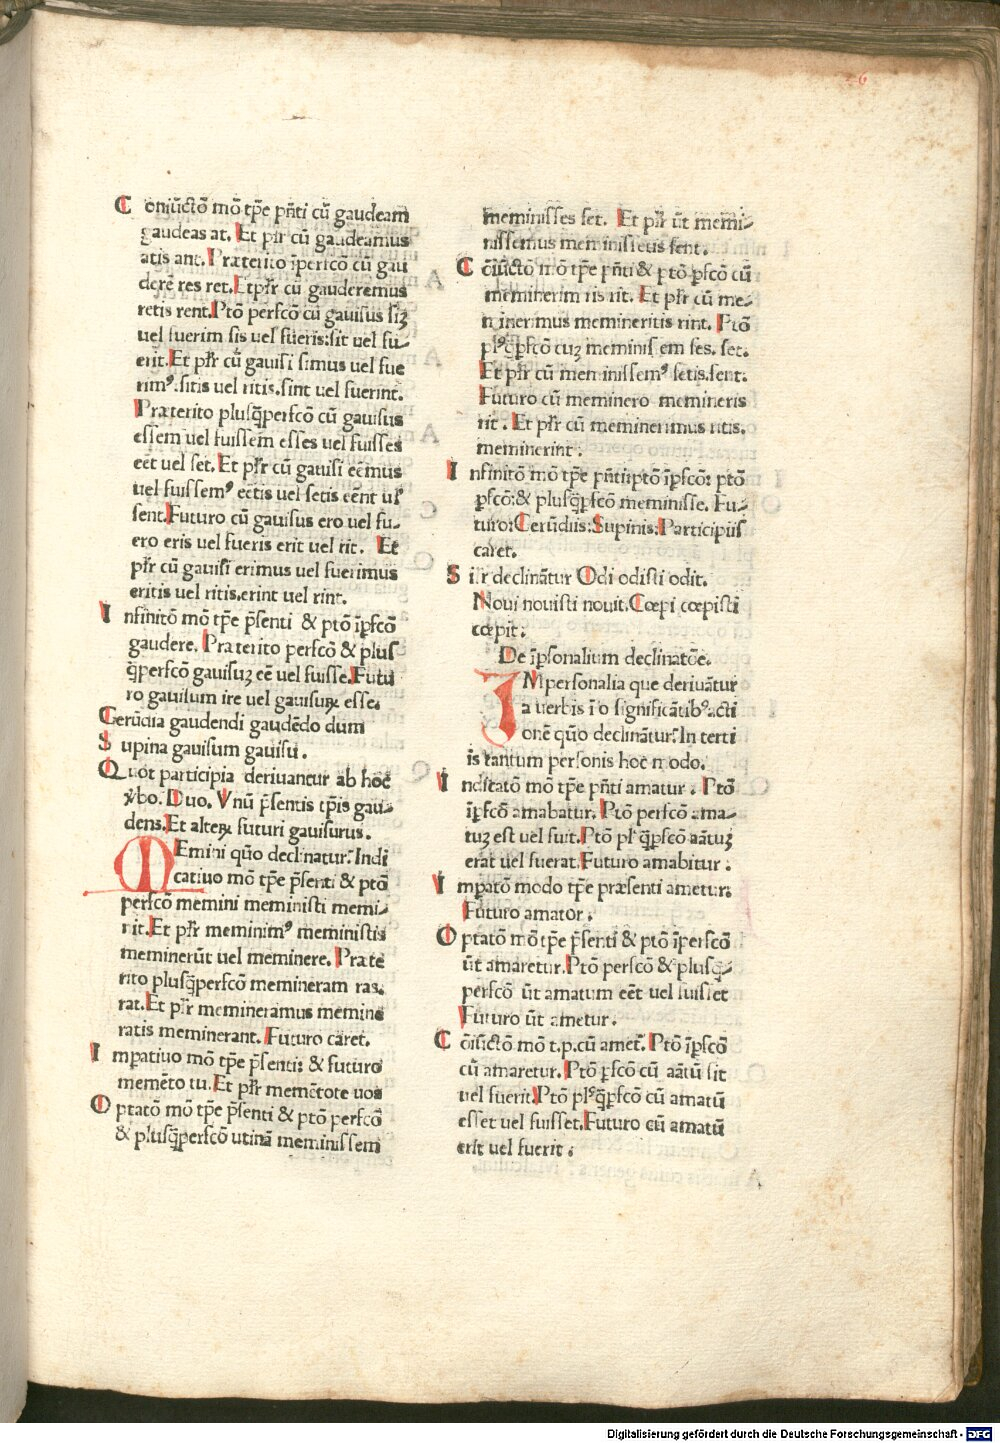 6
Coniūctō mō tp̄e pn̄ti cū gaudeam
gaudeas at. Et pl̄r cū gaudeamus
atis ant. Præterito īperfcō cū gau
derē res ret. Et pl̄r cū gauderemus
retis rent. Ptō perfcō cū gauisus siꝫ
uel fuerim sis uel fueris: sit uel fu-
erit. Et pl̄r cū gauisi simus uel fue
rimꝰ. sitis uel ritis. sint uel fuerint.
Præterito plusq̄perfcō cū gauisus
essem uel fuissem esses uel fuisses
eēt uel set. Et pl̄r cū gauisi eēmus
uel fuissemꝰ eētis uel setis eēnt ul̄
sent. Futuro cū gauisus ero uel fu-
ero eris uel fueris erit uel rit. Et
pl̄r cū gauisi erimus uel fuerimus
eritis uel ritis. erint uel rint.
Infinitō mō tp̄e p̄senti & ptō īpfcō
gaudere. Præterito perfcō & plus
q̄perfcō gauisuꝫ eē uel fuisse. Futu
ro gauisum ire uel gauisuꝝ esse.
Gerūdia gaudendi gaudēdo dum
Supina gauisum gauisu.
Quot participia deriuantur ab hoc
v̄bo. Duo. Vnū p̄sentis tp̄is gau-
dens. Et alteꝝ futuri gauisurus.
Memini quō declinatur. Indi
catiuo mō tp̄e p̄senti & ptō
perfcō memini meministi memi-
nit. Et pl̄r meminimꝰ meministis
meminerūt uel meminere. Præte
rito plusq̄perfcō memineram ras.
rat. Et pl̄r memineramus memine
ratis meminerant. Futuro caret.
Impatiuo mō tp̄e p̄senti: & futuro
memēto tu. Et pl̄r memētote uos
Optatō mō tp̄e p̄senti & ptō perfcō
& plusq̄perfcō utinā meminissem
meminisses set. Et pl̄r ūt memi-
nissemus meminissetis sent.
Cōiūctō mō tp̄e pn̄ti & ptō ꝑfcō cū
meminerim ris rit. Et pl̄r cū me-
minerimus memineritis rint. Ptō
plꝰq̄ꝑfcō cuꝫ meminissem ses. set.
Et pl̄r cū meminissemꝰ setis. sent.
Futuro cū meminero memineris
rit. Et pl̄r cū meminerimus ritis.
meminerint.
Infinitō mō tp̄e pn̄ti: ptō īpfcō: ptō
ꝑfcō: & plusq̄ꝑfcō meminisse. Fu-
turo: Gerūdiis: Supinis: Participiis
caret.
Sil̄r declinātur Odi odisti odit.
Noui nouisti nouit. Cœpi cœpisti
cœpit.
De īpsonalium declinatōe.
IMpersonalia que deriuātur
a uerbis ī o significātibꝰ acti
onē quō declinātur. In terti
is tantum personis hoc modo.
Indicatō mō tp̄e pn̄ti amatur. Ptō
īpfcō amabatur. Ptō perfcō ama-
tuꝫ est uel fuit. Ptō plꝰq̄ꝑfcō aātuꝫ
erat uel fuerat. Futuro amabitur.
Impatō modo tp̄e præsenti ametur.
Futuro amator.
Optatō mō tp̄e p̄senti & ptō īperfcō
ūt amaretur. Ptō perfcō & plusq̄-
perfcō ūt amatum eēt uel fuisset
Futuro ūt ametur.
Cōiūctō mō t.p. cū amet̄. Ptō īpfcō
cū amaretur. Ptō ꝑfcō cū aātū sit
uel fuerit. Ptō plꝰq̄ꝑfcō cū amatū
esset uel fuisset. Futuro cū amatū
erit uel fuerit.
Digitalisierung gefördert durch die Deutsche Forschungsgemeinschaft - DFG